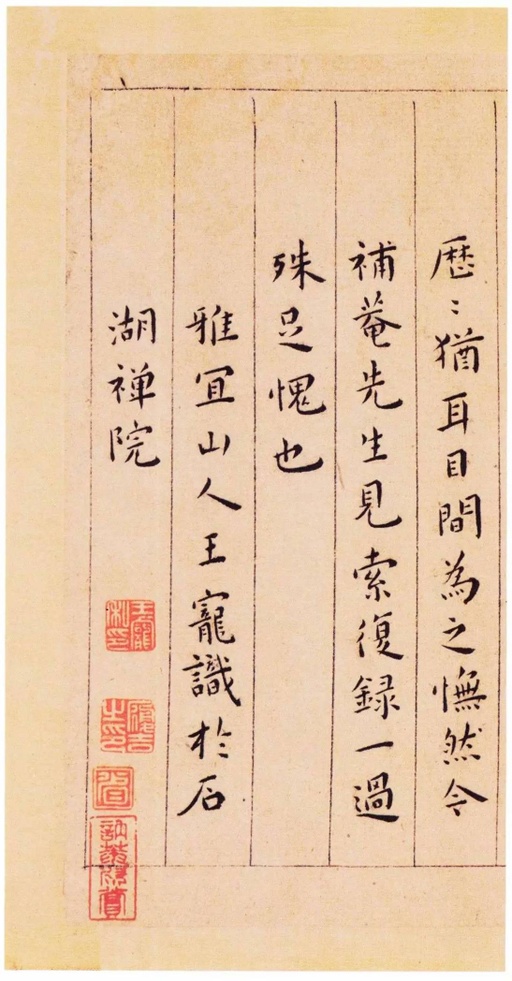 歷〻猶耳目間為之憮然今
補菴先生見索復錄一過
殊足愧也
雅宜山人王寵識於石
湖禅院
王寵私印